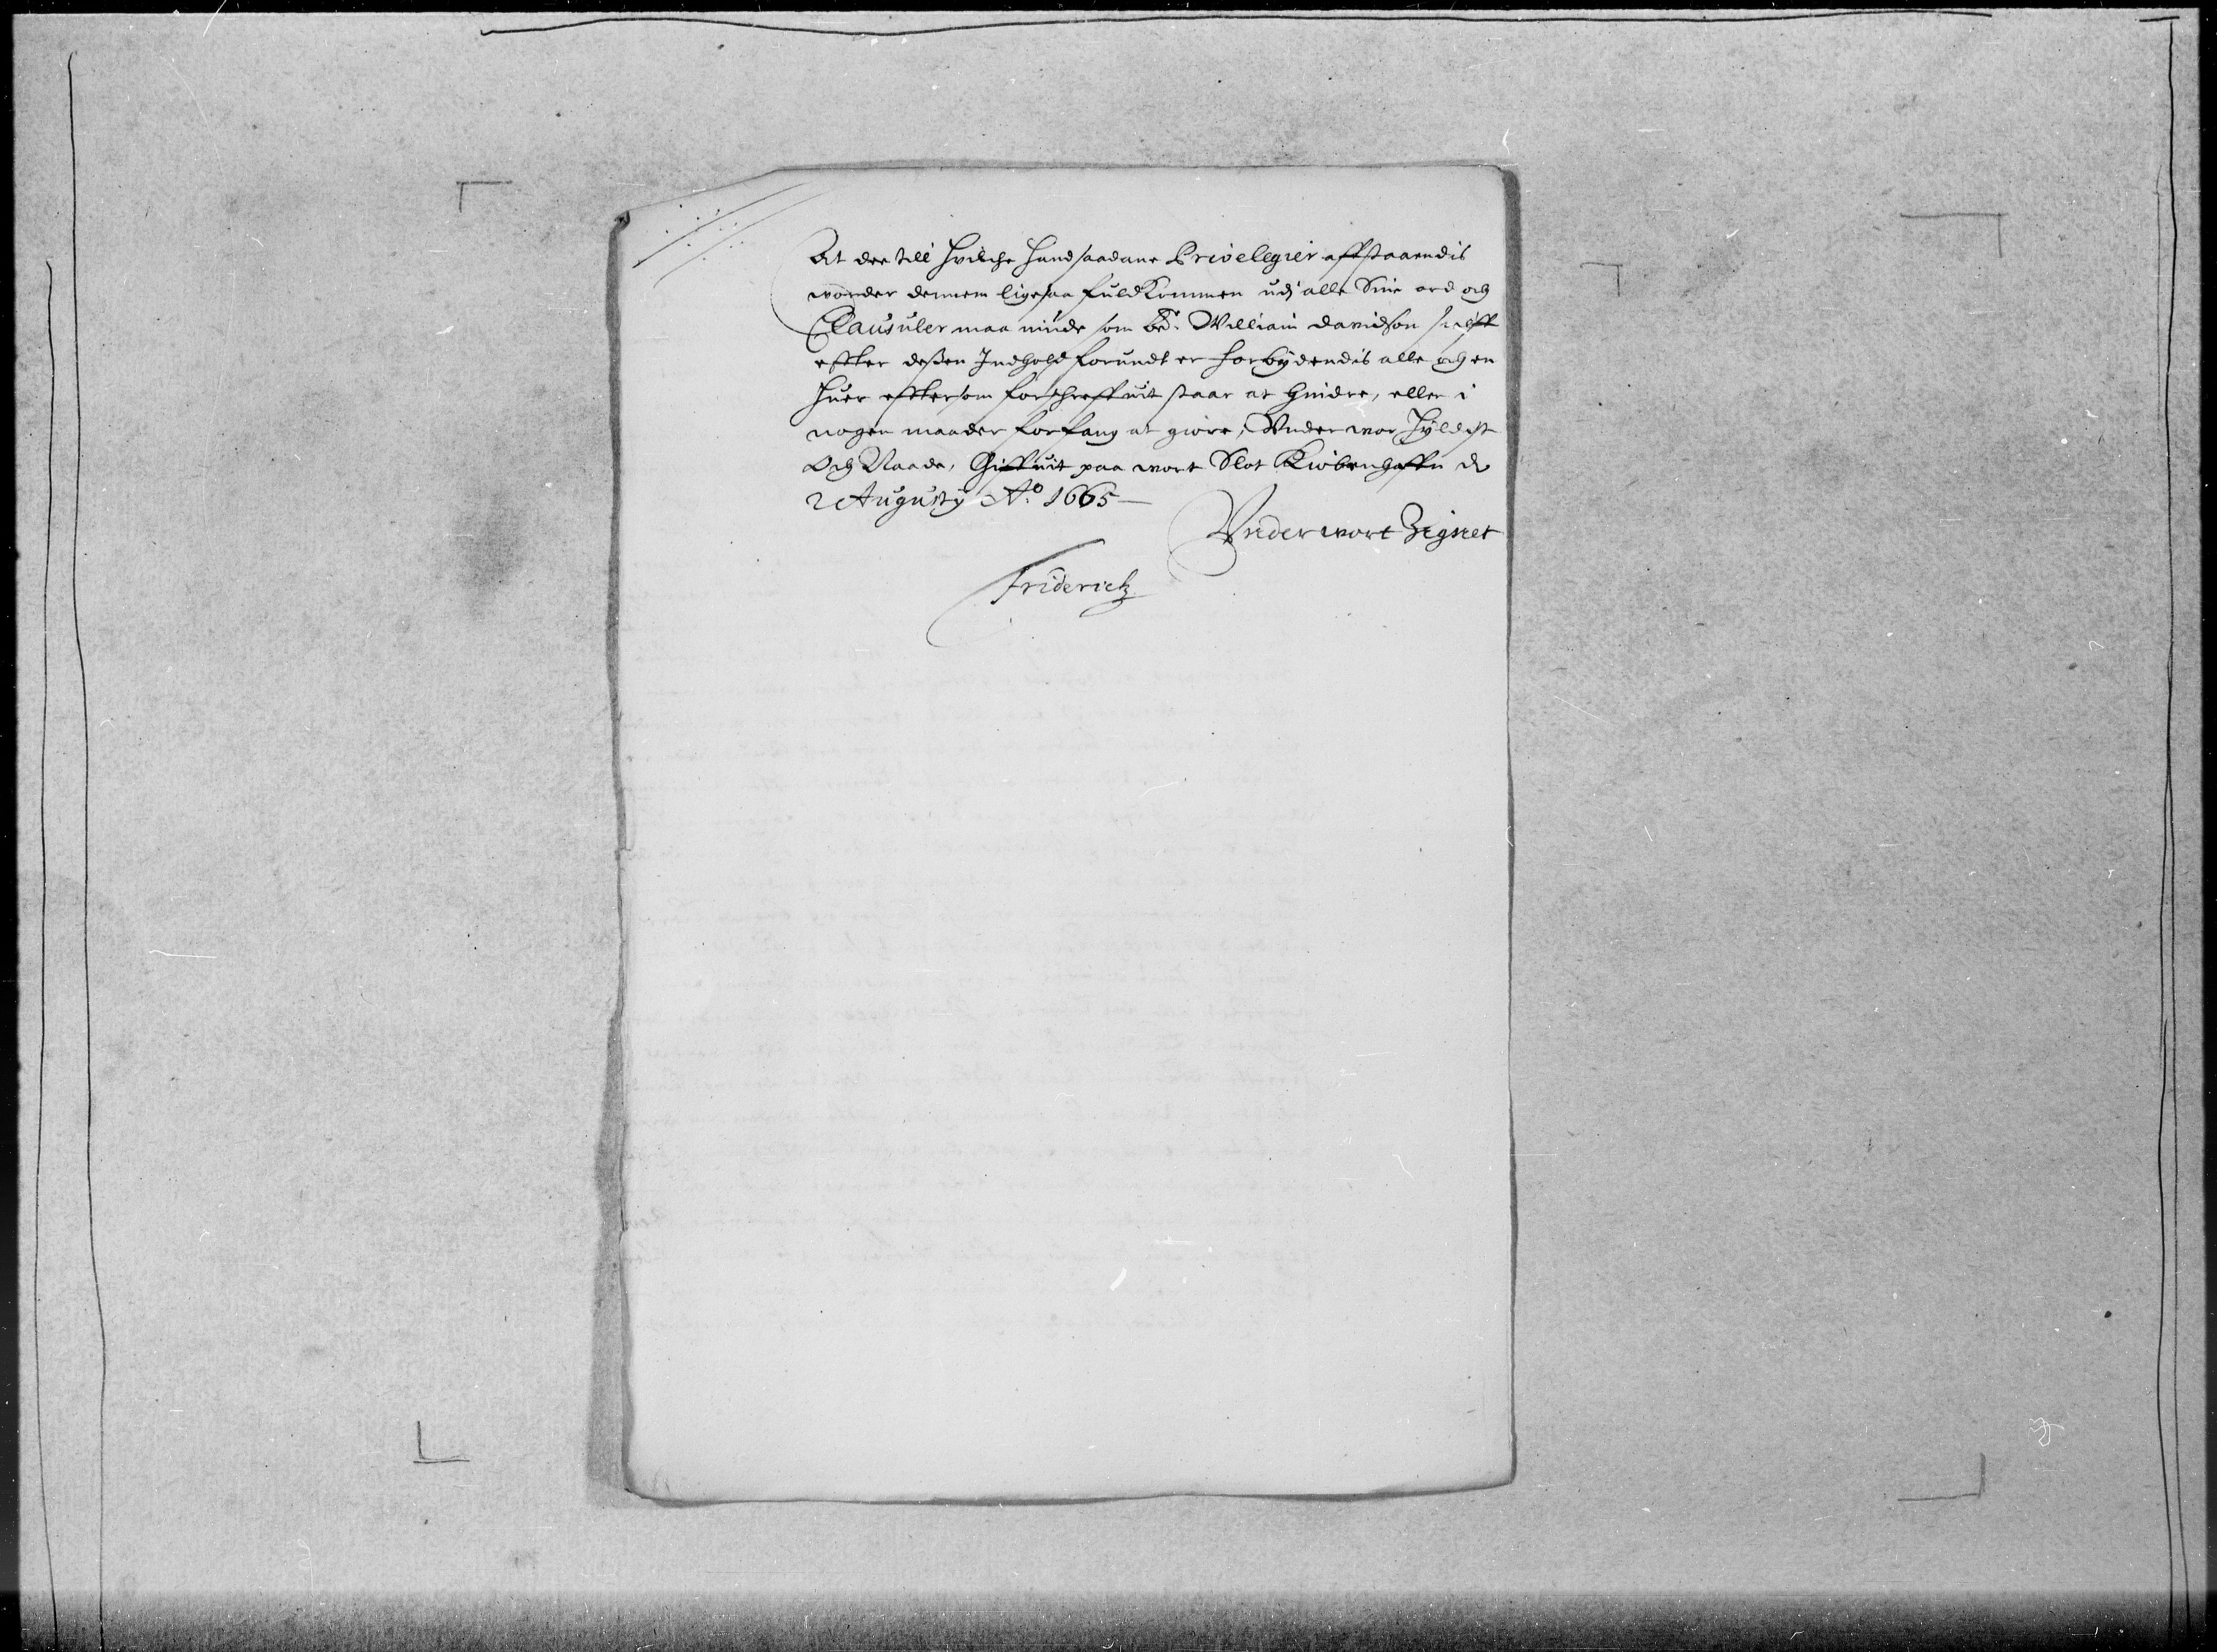 At der till hvilche hand saadane Privelegier affstaaendis
vorder dennem ligesaa fuldkommen udj alle Sine ord och
Clausuler maa niude som bete. William Davidson sielff
effter deßen Indhold forundt er forbydendis alle och en
huer effttersom forschreffuit staar at hindre, eller i
nogen maader forfang at giøre, Vnder vor hyldest
Och Naade, Giffuit paa vort Slot Kiøbenhaffn d
2 Augustij Ao. 1665
Vnder vort Zignet
Friderich